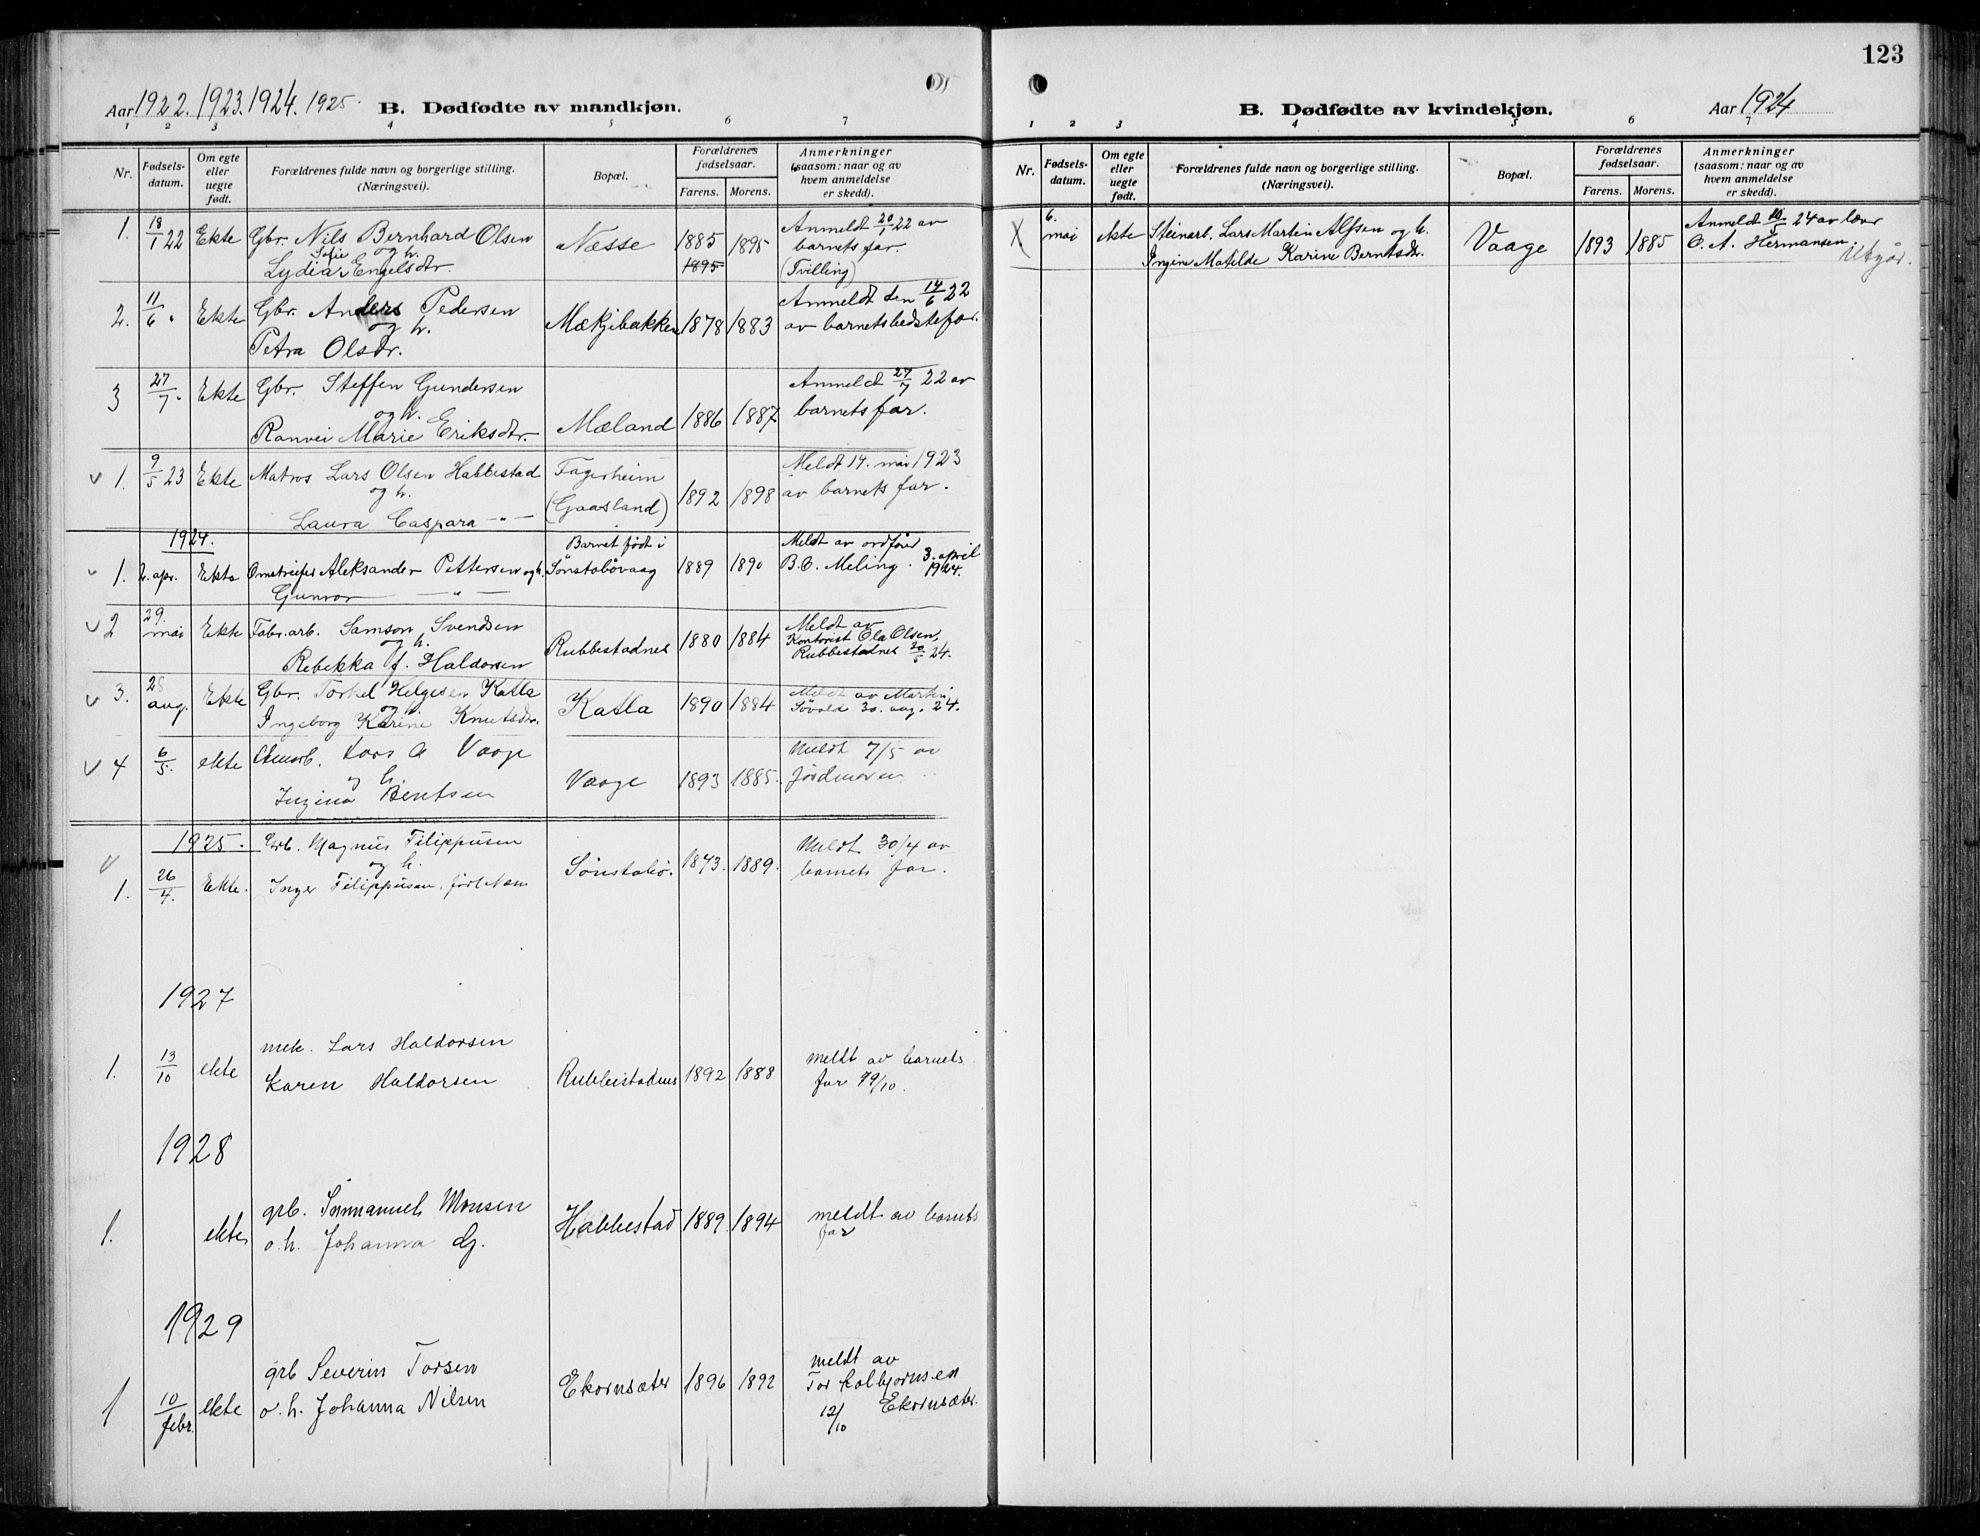 Aar 1922. 1923. 1924. 1925.
B. Dødfødte av mandkjøn.
1 2 3 4 5 6 7
Nr.
Fødsels-
datum.
Om egte
eller
uegte
født.
Forældrenes fulde navn og borgerlige stilling.
(Næringsvei).
Bopæl.
Forældrenes
fødselsaar.
Farens. Morens.
Anmerkninger
(saasom: naar og av
hvem anmeldelse
er skedd).
1. 18/1 22 Ekte Gbr. Nils Bernhard Olsen Næsse 1885 1895 Anmeldt 20/1 22 av
Sofie og h. 1895 barnets far.
Lydia Engelsdtr. (Tvilling)
2. 11/6 " Ekte Gbr. Anders Pedersen Mækjebakken 1878 1883 Anmeldt den 14/6 22
og h. av barnets bedstefar.
Petra Olsdr.
3 27/7 " Ekte Gbr. Steffen Gundersen Mæland 1886 1887 Anmeldt 27/7 22 av
og h. barnets far.
Ranvei Marie Eriksdtr.
v 1. 9/5 23 Ekte Matros Lars Olsen Habbestad Fagerheim 1892 1898 Meldt 14. mai 1923
og h. (Gaasland) av barnets far.
Laura Caspara - " -
1924.
Barnet født i
v 1. 2. apr. Ekte Aleksander Pettersen og h. Sønstabøvaag 1889 1890 Meldt av ordfører
Gunvor - " - B. C. Meling. 3. april 1924.
v 2 29. mai Ekte Fabr. arb. Samson Svendsen Rubbestadnes 1880 1884 Meldt av
og h. Kontorist Ola Olsen,
Rebekka f. Haldorsen Rubbestadnes 30/5 24.
v 3. 28 aug. Ekte Gbr. Torkel Helgesen Katla Katla 1890 1884 Meldt av Martin
og h. Søvold 30. aug. 24.
Ingeborg Karine Knutsdtr.
v 4 6/5. ekte Stenarb. Lars A Vaage Vaage 1893 1885. Meldt 7/5 av
og h. Jordmoren
Ingina Bentsen
1925.
v 1. 26/4. Ekte. Magnus Filippusen Sønstabø. 1873. 1889. Meldt 30/4 av
og h. barnets far.
Inger Filippusen, født
1927
1. 13/10 ekte mek. Lars Haldorsen Rubbestadnes 1892 1888 meldt av barnets
Karen Haldorsen far 19/10.
1928
1. ekte grb. Immanuel Monsen Habbestad 1889 1894 meldt av barnets
o. h. Johanna G. far
1929
1 10/febr. ekte grb Severin Torsen Ekornsæter 1896 1892 meldt av
o. h. Johanna Nilsen Tor Kolbjørnsen
12/10 Ekornsæter.
123
B. Dødfødte av kvindekjøn.
Aar 1924
1 2 3 4 5 6 7
Nr.
Fødsels-
datum.
Om egte
eller
uegte
født.
Forældrenes fulde navn og borgerlige stilling.
(Næringsvei).
Bopæl.
Forældrenes
fødselsaar.
Farens. Morens.
Anmerkninger
(saasom: naar og av
hvem anmeldelse
er skedd).
X 6. mai ekte Steinarb. Lars Martin Alfsen og h. Vaage 1893 1885 Anmeldt 10/5 24 av lærer
Ingine Matilde Karine Berntsdtr. O. A. Hermansen Utgår.